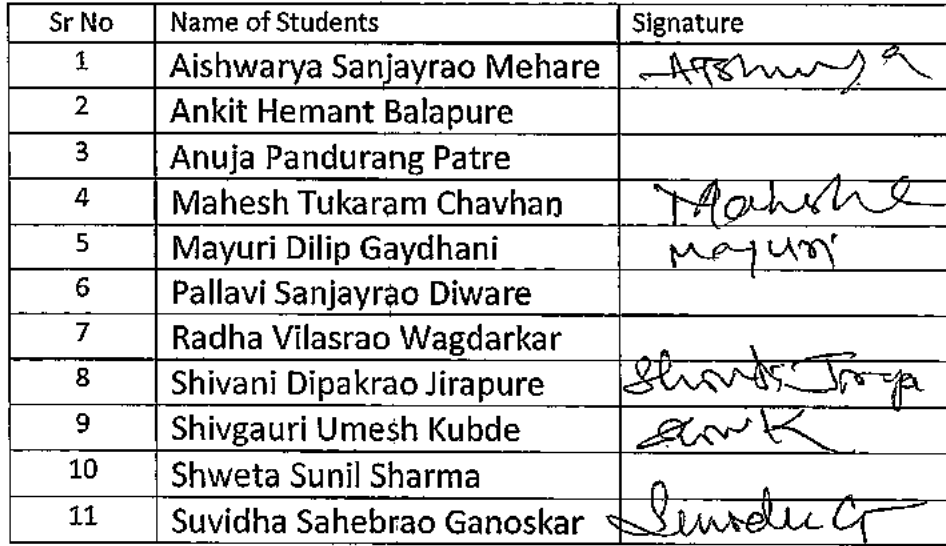 Sr No Name of Students Signature
1 Aishwarya Sanjayrao Mehare
2 Ankit Hemant Balapure
3 Anuja Pandurang Patre
4 Mahesh Tukaram Chavhan
5 Mayuri Dilip Gaydhani Mayuri
6 Pallavi Sanjayrao Diware
7 Radha Vilasrao Wagdarkar
8 Shivani Dipakrao Jirapure
9 Shivgauri Umesh Kubde
10 Shweta Sunil Sharma
11 Suvidha Sahebrao Ganoskar